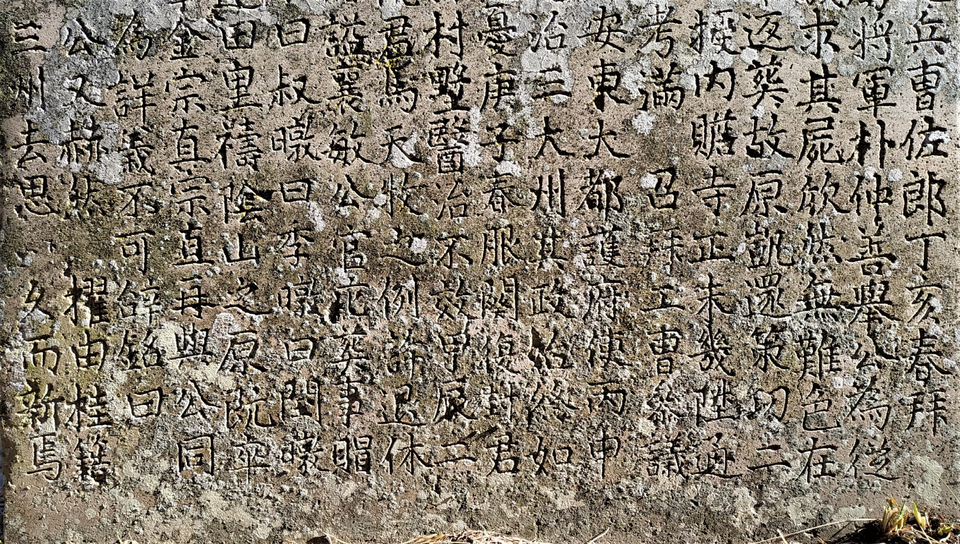 兵曹佐郎丁亥春拜
將軍朴仲善舉公為從
求其屍欣然無難色在
返葬故原凱還策功二
授內贍寺正未幾陞通
考滿召拜工曹參議
安東大都護府使丙申
治三大州其政始終如
憂庚子春服闋復封君
村野醫治不效甲辰二
君馬天牧之例許退休
謚襄敏公官庀葬事賵
曰叔暾曰季暾曰閏暾
田里禱陰山之原既卒
金宗直宗直再與公同
為詳義不可辭銘曰
公又赫然 擢由桂籍
三州去思 久而新焉